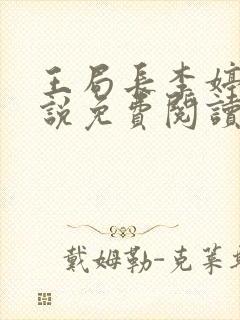 王局長李婷
說免費閱讀
戴姆勒-克萊